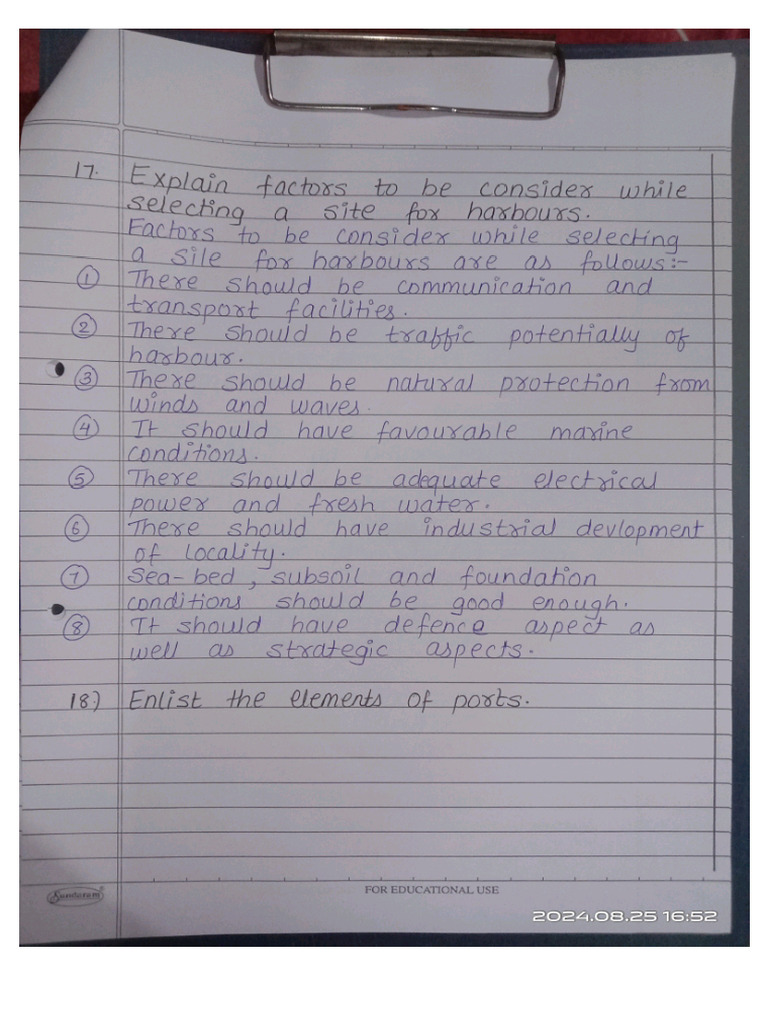 17. Explain factors to be consider while
selecting a site for harbours.
Factors to be consider while selecting
a sile for harbours are as follows:-
① There should be communication and
transport facilities.
② There should be traffic potentially of
harbour.
③ There should be natural protection from
winds and waves.
④ It should have favourable marine
conditions.
⑤ There should be adequate electrical
power and fresh water.
⑥ There should have industrial devlopment
of locality.
⑦ Sea-bed, subsoil and foundation
conditions should be good enough.
⑧ It should have defence aspect as
well as strategic aspects.
18.) Enlist the elements of ports.
Sundaram
FOR EDUCATIONAL USE
2024.08.25 16:52